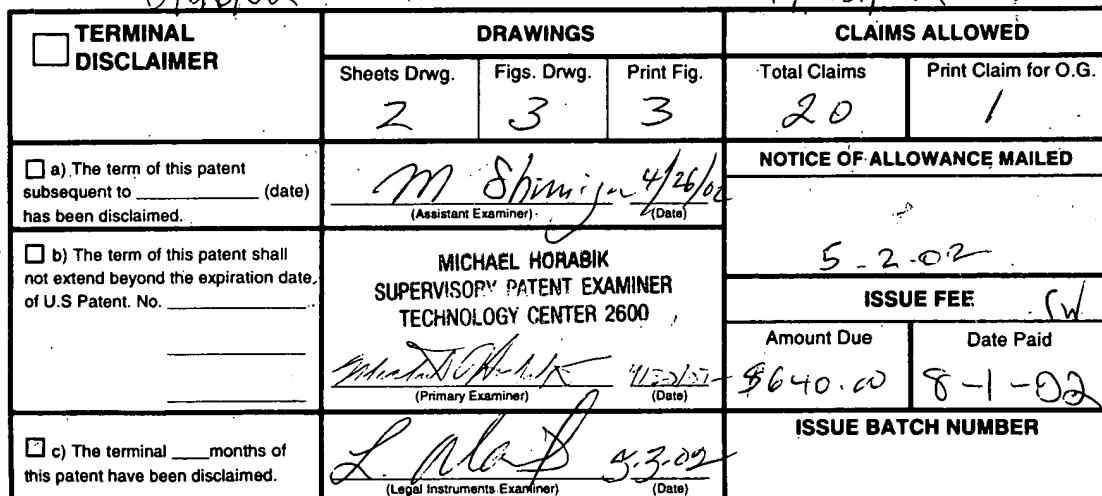 TERMINAL
DISCLAIMER
DRAWINGS
CLAIMS ALLOWED
Sheets Drwg.
Figs. Drwg.
Print Fig.
Total Claims
Print Claim for O.G.
2
3
3
20
1
a) The term of this patent
subsequent to ________ (date)
has been disclaimed.
M 4/26/02
(Assistant Examiner)
(Date)
NOTICE OF ALLOWANCE MAILED
5-2-02
b) The term of this patent shall
not extend beyond the expiration date
of U.S Patent. No. ________
MICHAEL HORABIK
SUPERVISORY PATENT EXAMINER
TECHNOLOGY CENTER 2600
(Primary Examiner)
(Date)
ISSUE FEE
Amount Due
Date Paid
$640.00
8-1-02
c) The terminal ____months of
this patent have been disclaimed.
L.
(Legal Instruments Examiner)
(Date)
ISSUE BATCH NUMBER